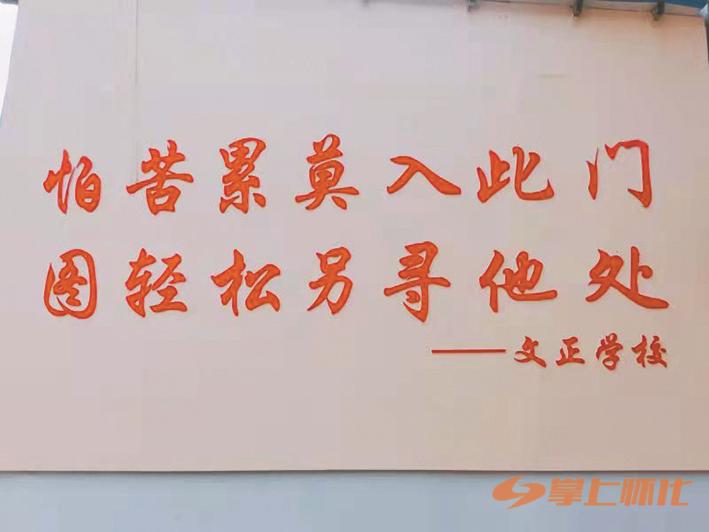 怕苦累莫入此门
图轻松另寻他处
——文正学校
掌上怀化